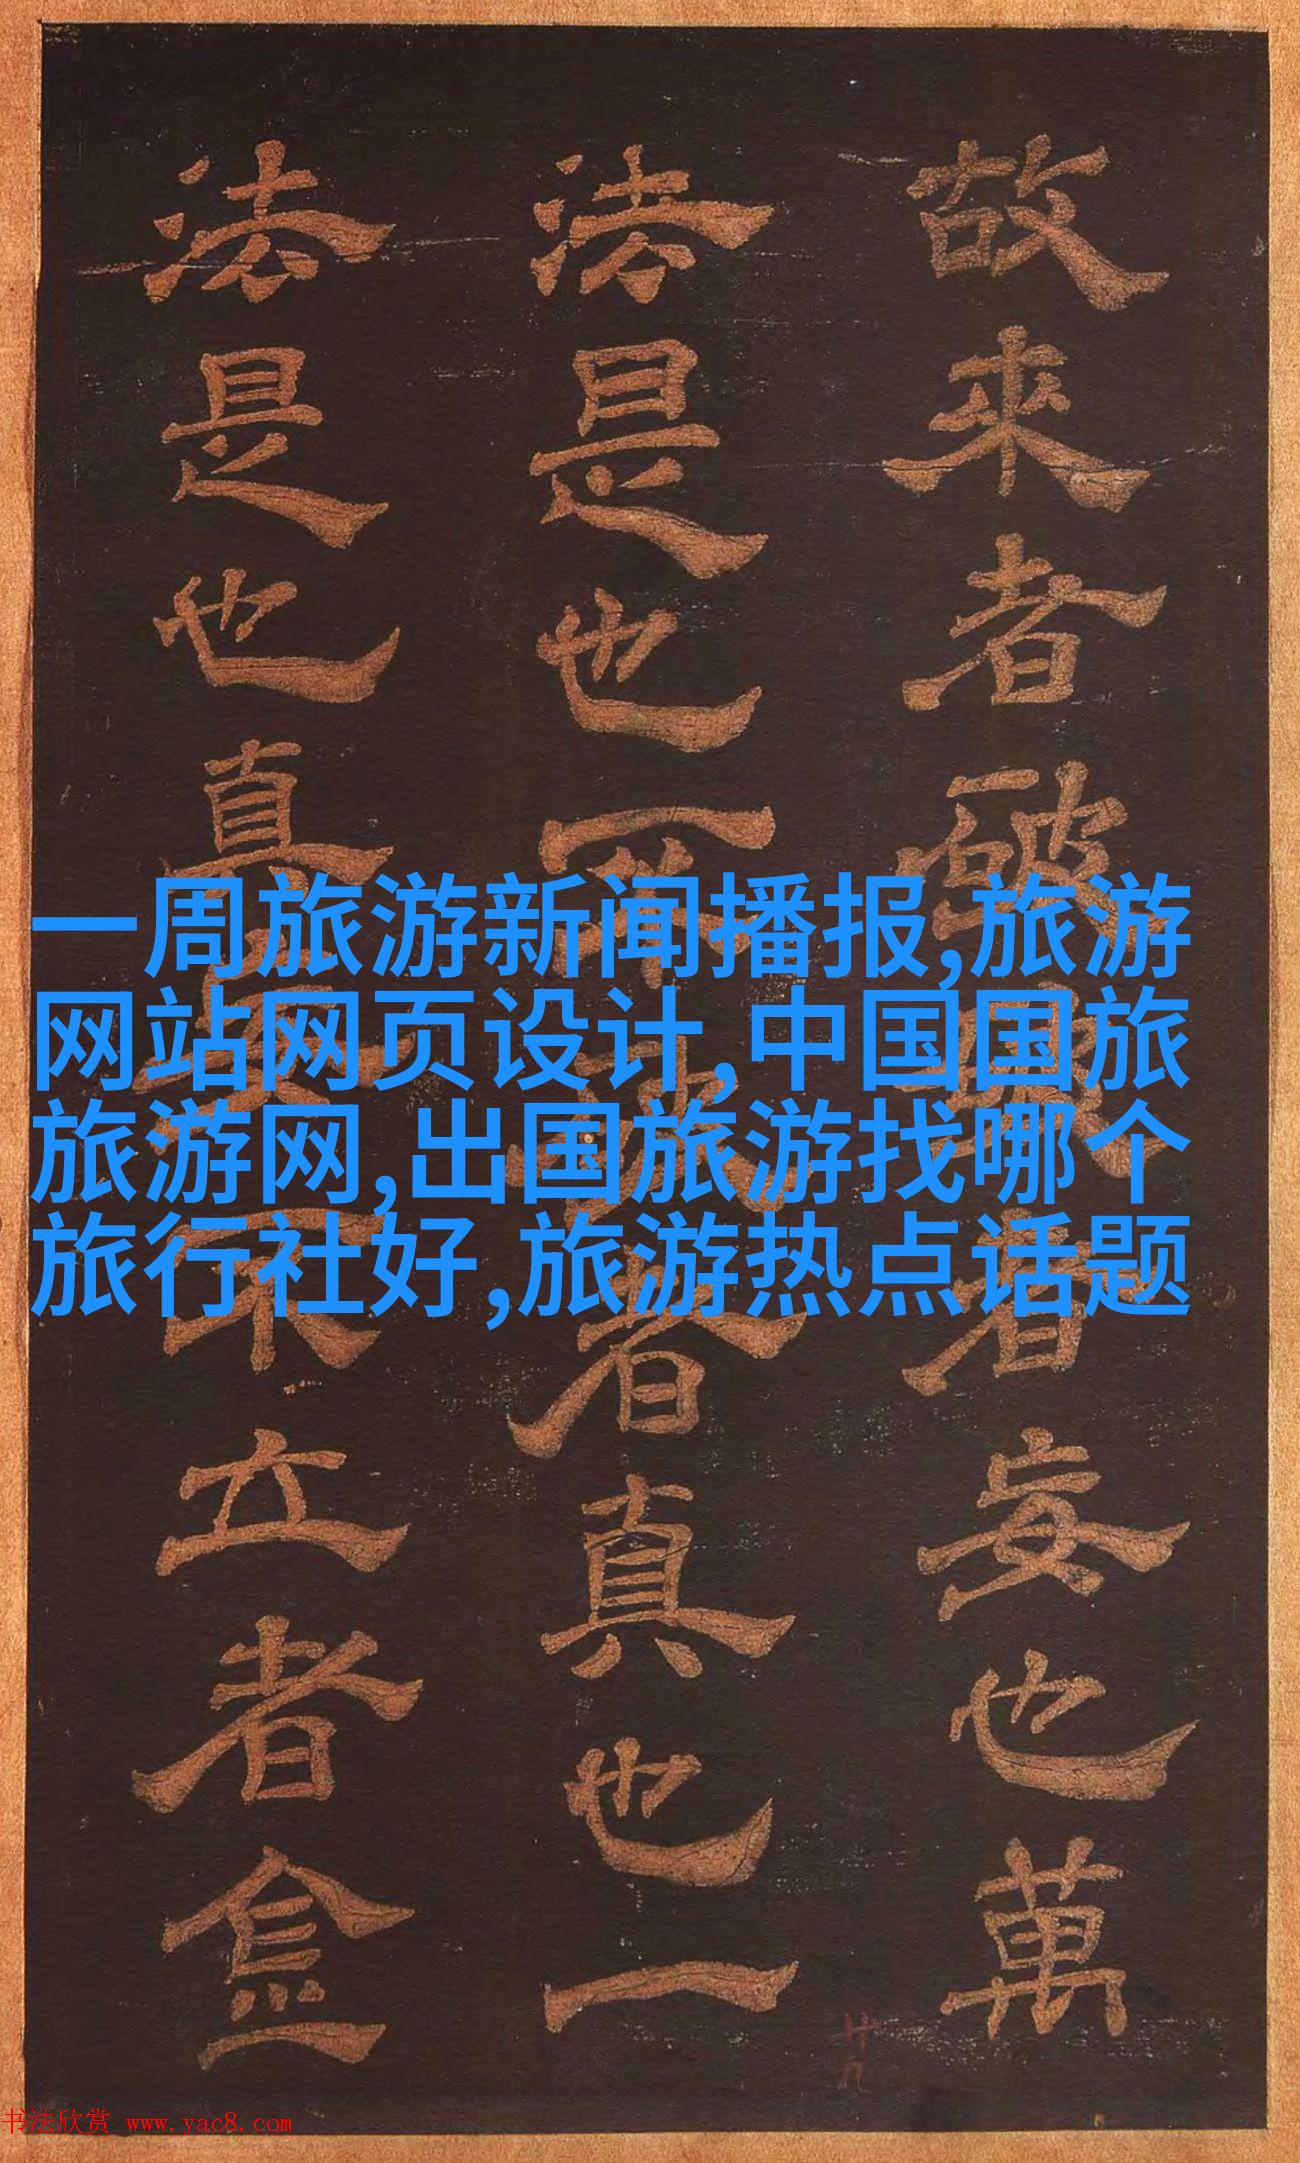 一周旅游新闻播报,旅游
网站网页设计,中国国旅
旅游网,出国旅游找哪个
旅行社好,旅游热点话题
故來者者妄也萬
法是也者真也一
法是也真不立者
廿九
书法欣赏 www.yac8.com